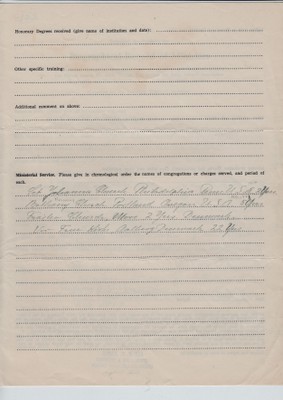 Honorary Degrees received (give name of institution and date):
Other specific training:
Additional comment on above:
Ministerial Service. Please give in chronological order the names of congregations or charges served, and period of
each.
Set. Johannes Church, Philadelphia U.S.A.
Bethany Church, Portland Oregon U.S.A. Year
Church, 2 Year Danmark
Aalborg Danmark 22 Year